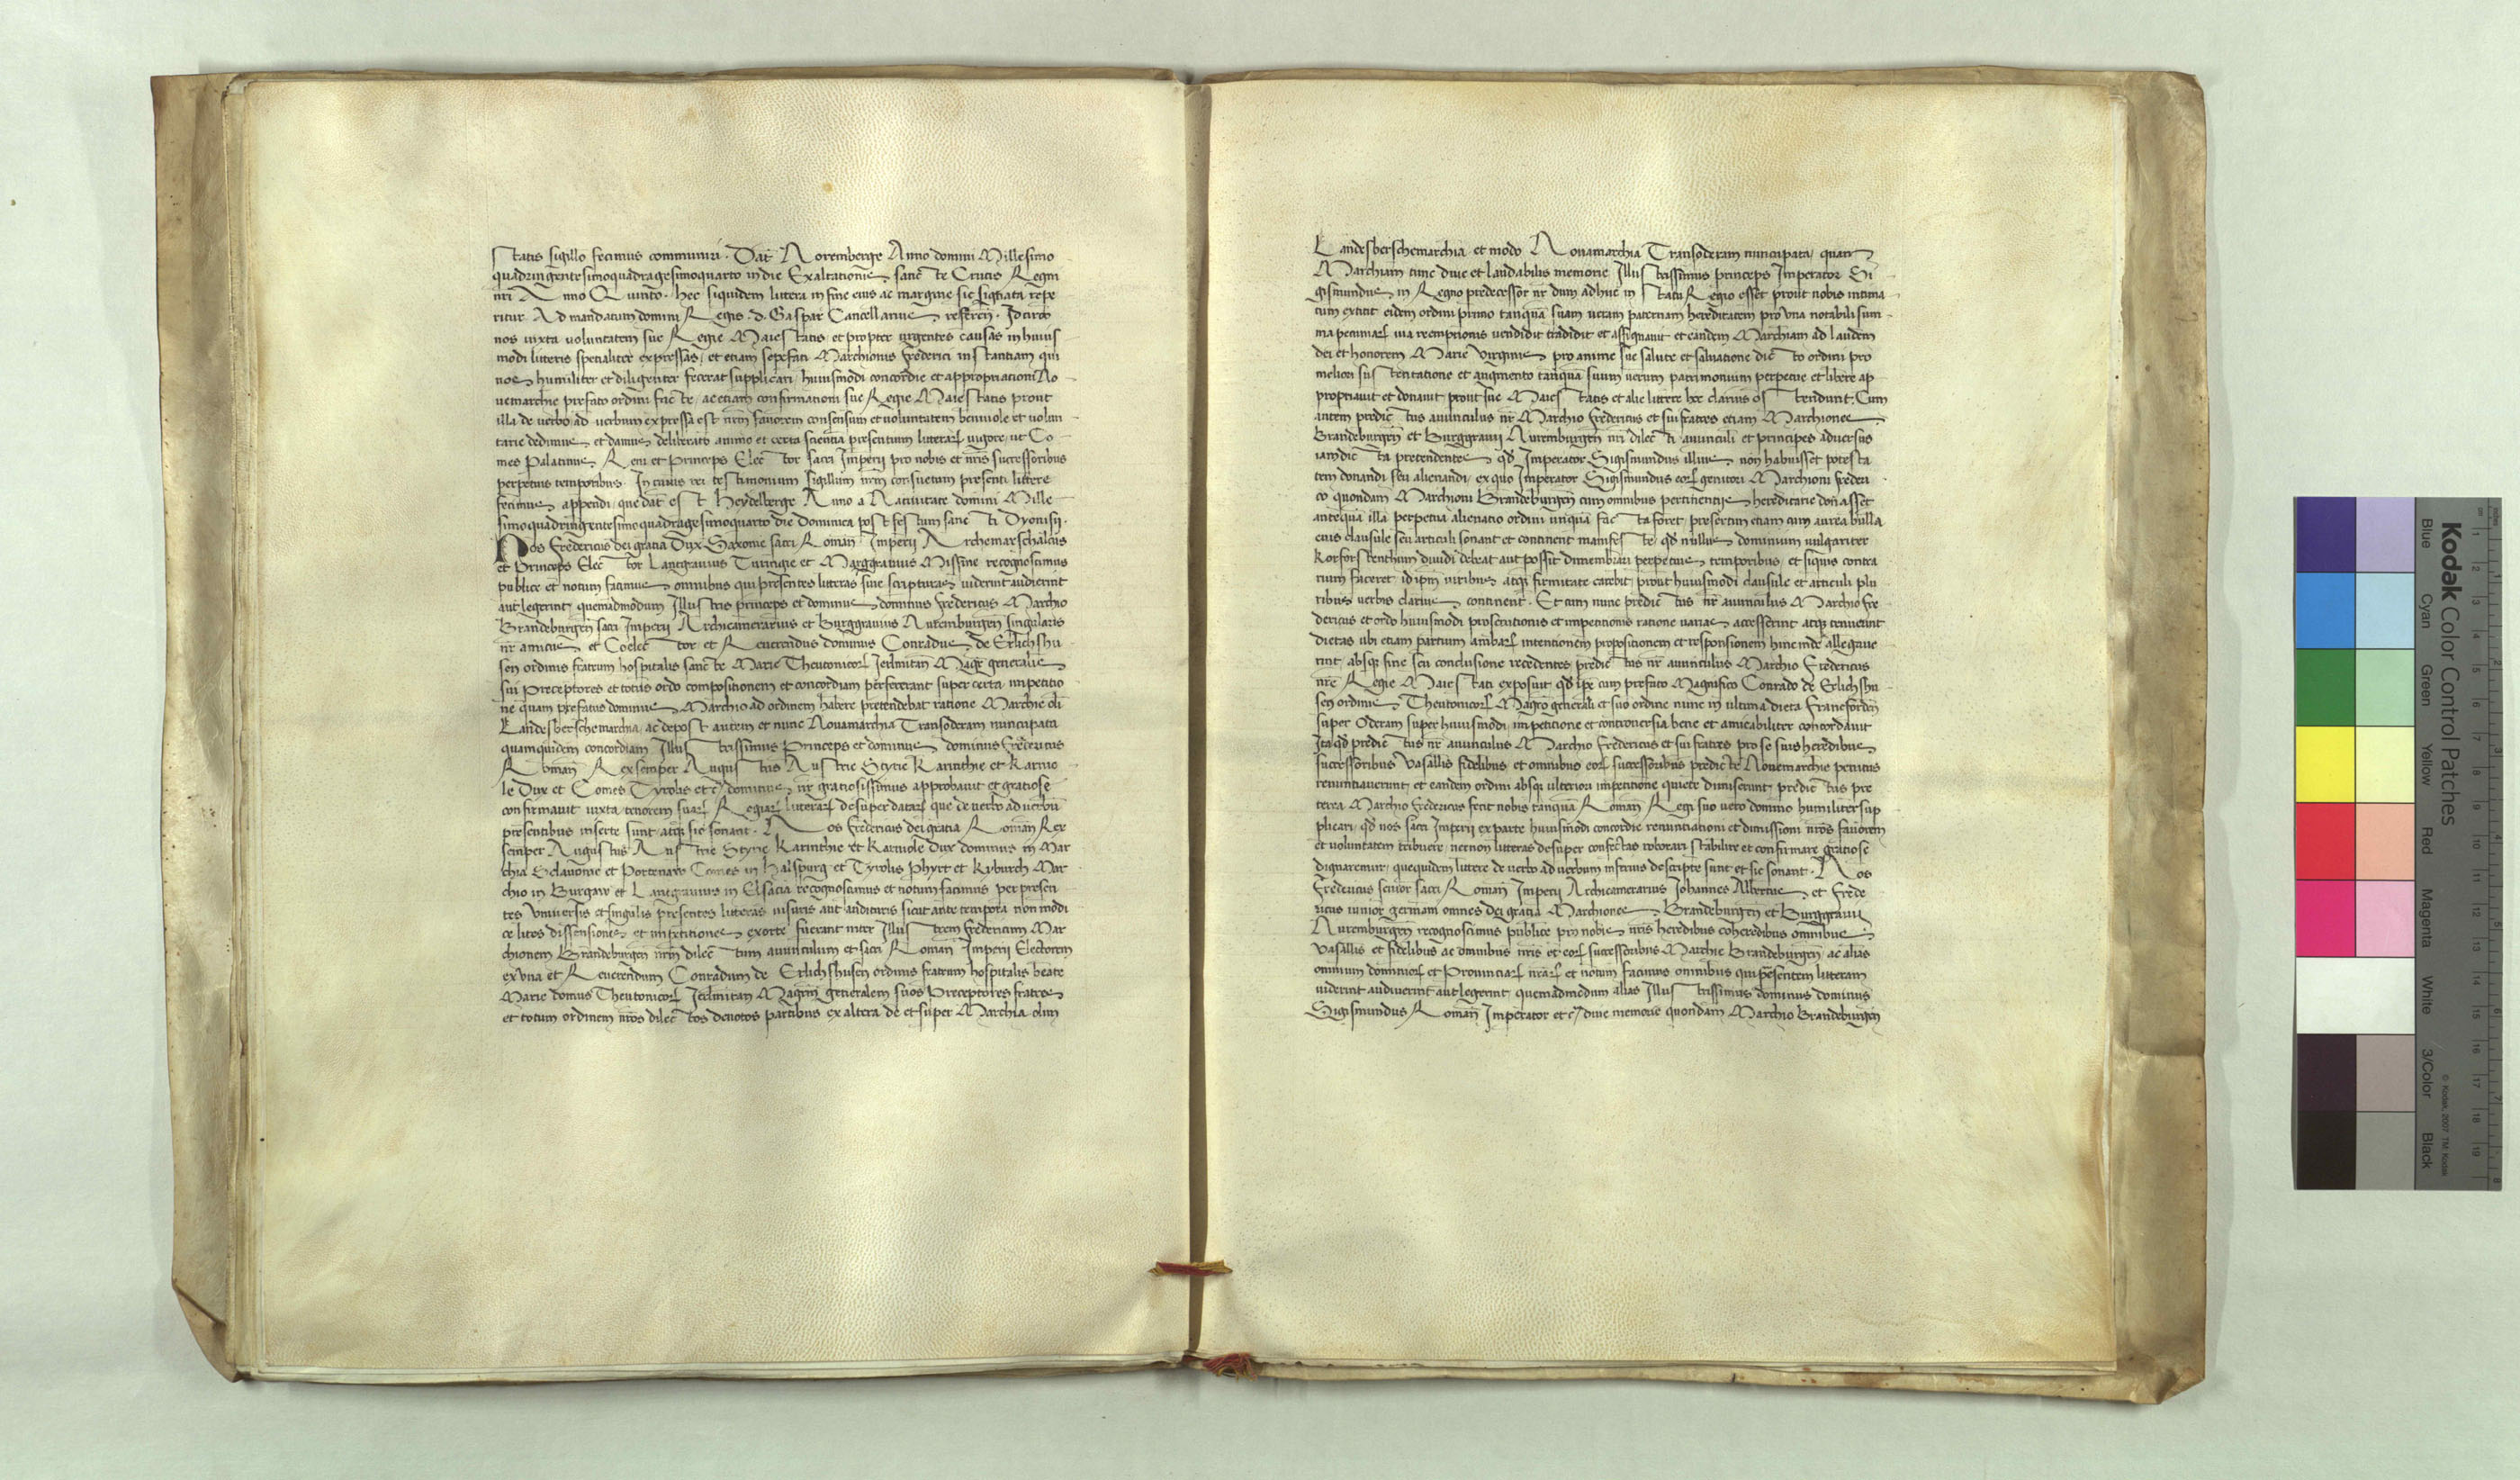 statis sigillo fecimus communiri. Dat̄ Noremberge Anno domini Millesimo
quadringentesimoquadragesimoquarto in die Exaltationis sancte Crucis Regni
nr̄i Anno Quinto. hec siquidem littera in fine eius ac margine sic signata repe
ritur Ad mandatum domini Regis. d. Gaspar Cancellarius referen̄. Idcirco
nos iuxta voluntatem sue Regie Maiestatis et propter urgentes causas in huius
modi litteris specialiter expressas, et etiam sepefati Marchionis Frederici instantiam qui
nos humiliter et diligenter fecerat supplicari, huiusmodi concordie et appropriationi No
uemarchie prefato ordini facte, ac etiam confirmationi sue Regie Maiestatis prout
illa de verbo ad verbum expressa est nr̄m fauorem consensum et voluntatem beniuole et volun
tarie dedimus et damus deliberato animo et certa scientia presentium litterarꝝ vigore, ut Co
mes Palatinus Reni et Princeps Elector sacri Imperii pro nobis et nr̄is successoribus
perpetuis temporibus. In cuius rei testimonium sigillum nr̄m consuetum presenti littere
fecimus appendi, que dat̄ est Heydelberge Anno a Natiuitate domini Mille
simoquadringentesimoquadragesimoquarto die Dominica post festum sancti Dyonisii.
Nos Fredericus dei gratia Dux Saxonie sacri Roman̄ Imperii Archemarschalcus
et Princeps Elector Lantgrauius Turingie et Marggrauius Missine recognoscimus
publice et notum facimus omnibus qui presentes litteras siue scripturas viderint audierint
aut legerint, quemadmodum Illustris princeps et dominus dominus Fredericus Marchio
Brandeburgen̄ sacri Imperii Archicamerarius et Burggrauius Nuremburgen̄ singularis
nr̄ amicus et Coelector et Reuerendus dominus Conradus de Erlichshu
sen ordinis fratrum hospitalis sancte Marie Theutonicorꝝ Jerlmitan̄ Magr̄ generalis
sui Preceptores et totus ordo compositionem et concordiam perfecerant super certa impetitio
ne quam prefatus dominus Marchio ad ordinem habere pretendebat ratione Marchie oli
Landesberschemarchia, ac depost autem et nunc Nouamarchia Transoderam nuncupata
quamquidem concordiam Illustrissimus Princeps et dominus dominus Fredericus
Roman̄ Rex semper Augustus Austrie Styrie Karinthie et Karnio
le Dux et Comes Tyrolis et c̄ dominus nr̄ gratiosissimus approbauit et gratiose
confirmauit iuxta tenorem suarꝝ Regiarꝝ litterarꝝ desuper datarꝝ que de verbo ad verbū
presentibus inserte sunt, atqꝫ sic sonant. Nos Fredericus dei gratia Roman̄ Rex
semper Augustus Austrie Styrie Karinthie et Karniole Dux dominus in Mar
chia Sclauonie et Portenaw Comes in Halspurg et Tyrolis Phyrt et Kyburch Mar
chio in Burgaw et Lantgrauius in Elsacia recognoscimus et notum facimus per presen
tes Vniuersis et singulis presentes litteras visuris aut audituris sicut ante tempora non modi
ce lites dissensiones et impetitiones exorte fuerant inter Illustrem Fredericum Mar
chionem Brandeburgen̄ nr̄m dilectum auunculum et sacri Roman̄ Imperii Electorem
ex vna et Reuerendum Conradum de Erlichshusen ordinis fratrum hospitalis beate
Marie domus Theutonicorꝝ Jerlmitan̄ Magr̄m generalem suos Preceptores fratres
et totum ordinem nr̄os dilectos deuotos partibus ex altera de et super Marchia olim
Landesberschemarchia et modo Nouamarchia Transoderam nuncupata, quam
Marchiam tunc diue et laudabilis memorie Illustrissimus princeps Imperator Si
gismundus in Regno predecessor nr̄ dum adhuc in statu Regio esset prout nobis intima
tum extitit eidem ordini primo tanquā suam veram paternam hereditatem pro vna notabili sum
ma pecuniarꝝ via reemptionis vendidit tradidit et assignauit et eandem Marchiam ad laudem
dei et honorem Marie Virginis pro anime sue salute et saluatione dicto ordini pro
meliori sustentatione et augmento tanquā suum verum patrimonium perpetue et libere ap
propriauit et donauit, prout sue Maiestatis et alie littere hec clarius ostendunt. Cum
autem predictus auunculus nr̄ Marchio Fredericus et sui fratres etiam Marchiones
Brandeburgen̄ et Burggrauii Nuremburgen̄ nr̄i dilecti auunculi et principes aduersus
iamdicta pretendentes qd̄ Imperator Sigismundus illius non habuisset potesta
tem donandi seu alienandi, ex quo Imperator Sigismundus eorꝝ genitori Marchioni Frederi
co quondam Marchioni Brandeburgen̄ cum omnibus pertinentiis hereditarie donasset
antequā illa perpetua alienatio ordini vnquā facta foret, presertim etiam cum aurea bulla
eius clausule seu articuli sonant et continent manifeste, qd̄ nullus dominium vulgariter
korforstenthum diuidi debeat aut possit dimembrari perpetuis temporibus, et siquis contra
rium faceret, id ipm̄ viribus atqꝫ firmitate carebit, prout huiusmodi clausule et articuli plu
ribus verbis clarius continent. Et cum nunc predictus nr̄ auunculus Marchio Fre
dericus et ordo huiusmodi prosecutionis et impetitionis ratione varias accesserint atqꝫ tenuerint
dietas vbi etiam partium ambarꝝ intentionem propositionem et responsionem hincinde allegaue
runt, absqꝫ fine seu conclusione recedentes predictus nr̄ auunculus Marchio Fredericus
nr̄e Regie Maiestati exposuit, qd̄ ip̄e cum prefato Magnifico Conrado de Erlichshu
sen ordinis Theutonicorꝝ Magr̄o generali et suo ordine nunc in vltima dieta Francforden̄
super Oderam super huiusmodi impetitione et controuersia bene et amicabiliter concordauit
Ita qd̄ predictus nr̄ auunculus Marchio Fredericus et sui fratres pro se suis heredibus
successoribus Vasallis fidelibus et omnibus eorꝝ successoribus predicte Nouemarchie penitus
renuntiauerunt, et eandem ordini absqꝫ vlteriori impetitione quiete dimiserunt, predictus pre
terea Marchio Fredericus fecit nobis tanquā Roman̄ Regi suo vero domino humiliter sup
plicari, qd̄ nos sacri Imperii ex parte huiusmodi concordie renuntiationi et dimissioni nr̄os fauorem
et voluntatem tribuere, necnon litteras desuper confectas roborari stabilire et confirmare gratiose
dignaremur, quequidem littere de verbo ad verbum inferius descripte sunt et sic sonant. Nos
Fredericus senior sacri Roman̄ Imperii Archicamerarius Johannes Albertus et Frede
ricus iunior germani omnes dei gratia Marchiones Brandeburgen̄ et Burggrauii
Nuremburgen̄ recognoscimus publice pro nobis nr̄is heredibus coheredibus omnibus
Vasallis et fidelibus ac omnibus nr̄is et eorꝝ successoribus Marchie Brandeburgen̄, ac alias
omnium dominiorꝝ et Prouinciarꝝ nr̄arꝝ et notum facimus omnibus qui presentem litteram
viderint audiuerint aut legerint, quemadmodum alias Illustrissimus dominus dominus
Sigismundus Roman̄ Imperator et c̄ diue memorie quondam Marchio Brandeburgen̄
Kodak Color Control Patches
Blue Cyan Green Yellow Red Magenta White 3/Color Black
© Kodak, 2007 TM: Kodak